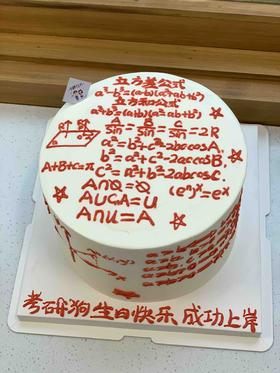 立方差公式
a³-b³=(a-b)(a²+ab+b²)
立方和公式
a³+b³=(a+b)(a²-ab+b²)
A/sin = B/sin = C/sin = 2R
a²=b²+c²-2bccosA
b²=a²+c²-2accosB
A+B+C=π c²=a²+b²-2abcosC
A∩∅=∅ (eⁿ)ˣ=eˣ
A∪CA=U
A∩U=A
考研狗生日快乐 成功上岸